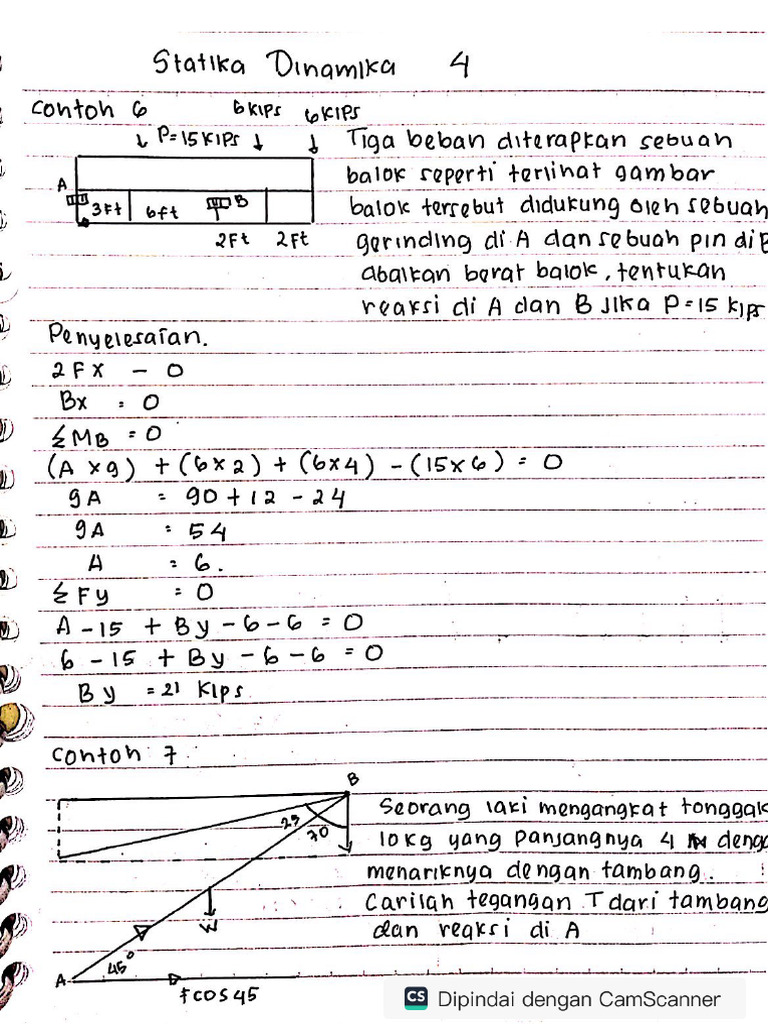 Statika Dinamika 4
Contoh 6
6 KIPS 6 KIPS
P=15 KIPS
A
B
3Ft 6ft
2Ft 2Ft
Tiga beban diterapkan sebuah
balok seperti terlihat gambar
balok tersebut didukung oleh sebuah
gerinding di A dan sebuah pin di B
abaikan berat balok, tentukan
reaksi di A dan B Jika P=15 Kips
Penyelesaian.
ΣFX - 0
Bx = 0
ΣMB = 0
(A x 9) + (6x2) + (6x4) - (15x6) = 0
9A = 90+12-24
9A = 54
A = 6.
ΣFy = 0
A - 15 + By - 6 - 6 = 0
6 - 15 + By - 6 - 6 = 0
By = 21 Kips
Contoh 7
B
25
20
W
A
45°
FCOS 45
Seorang laki mengangkat tonggak
10kg yang panjangnya 4 denga
menariknya dengan tambang.
Carilah tegangan T dari tambang
dan reaksi di A
CS Dipindai dengan CamScanner